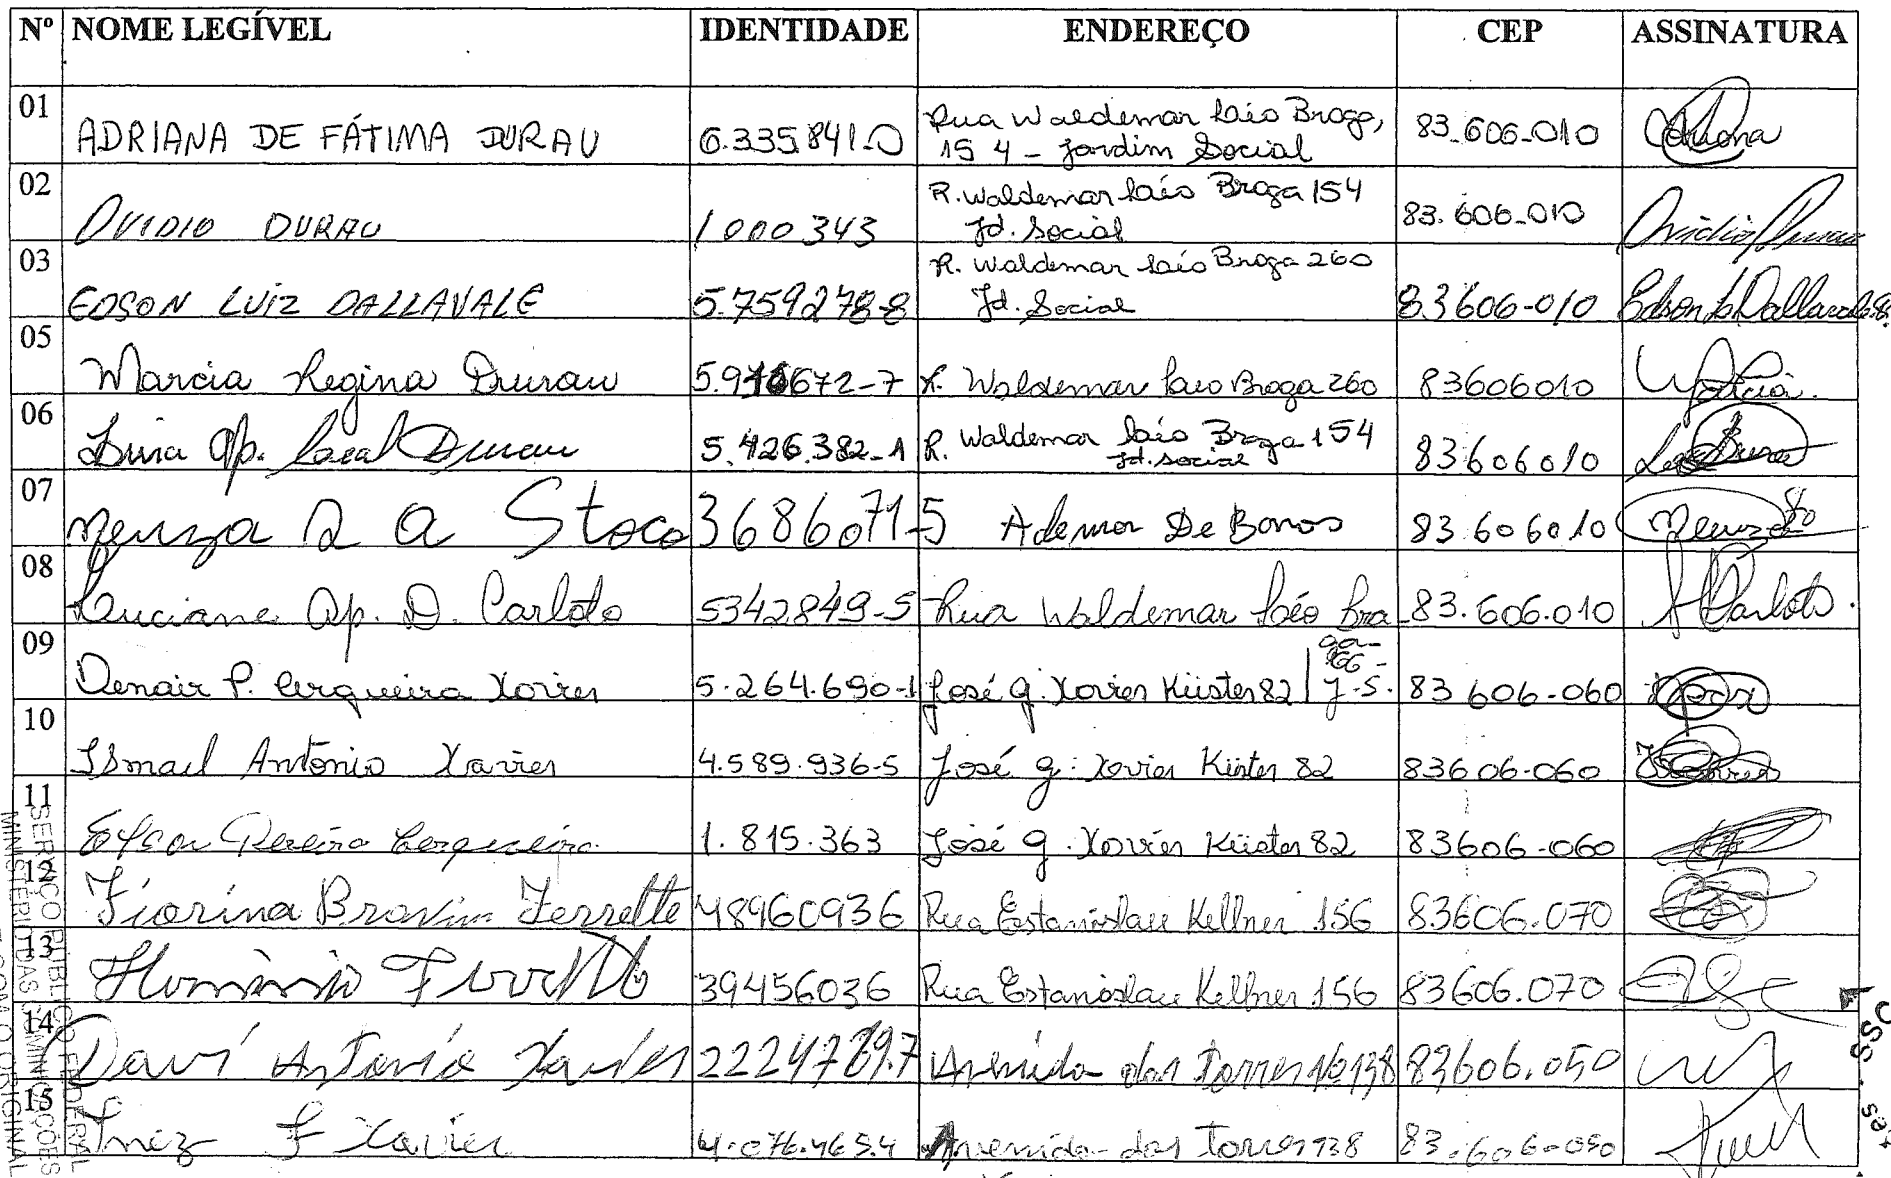 Nº NOME LEGÍVEL IDENTIDADE ENDEREÇO CEP ASSINATURA
01 ADRIANA DE FÁTIMA DURAU 6.335.841-0 Rua Waldemar Laio Braga, 83.606-010 Adriana
154 - Jardim Social
02 OVIDIO DURAU 1000343 R. Waldemar Laio Braga 154 83.606-010 Ovidio Durau
Jd. Social
03 EDSON LUIZ DALLAVALE 5.759278-8 R. Waldemar Laio Braga 260 83606-010 Edson L Dallavale
Jd. Social
05 Marcia Regina Durau R. Waldemar Laio Braga 260 83606010 Marcia
06 Ap. Leal Durau 5.426.382-1 R. Waldemar Laio Braga 154 83606010 Durau
Jd. Social
07 Neuza R A Stoco 3686071-5 Ademar De Barros 83.606010 Neuza
08 Luciane Ap. D. Carloto 5342849-5 Rua Waldemar Laio Bra 83.606.010 Carloto
ga-
09 Denair P. Cerqueira Xavier 5.264.690-1 José G. Xavier Küster 82 J.S. 83606-060
10 Ismael Antonio Xavier 4.589.936-5 José G. Xavier Küster 82 83606-060
11 Pereira Cerqueira 1.815.363 José G. Xavier Küster 82 83606-060
12 Fiorina Bravim Ferrette 48960936 Rua Estanislau Kellner 156 83606.070
13 39456036 Rua Estanislau Kellner 156 83606.070
14 Davi Antonio Xavier 2224789.7 Avenida das Torres 83606.050
15 Inez F Xavier 4.076.465.4 Avenida das Torres 938 83.606-050
SERVIÇO PÚBLICO FEDERAL
MINISTÉRIO DAS COMUNICAÇÕES
COM O ORIGINAL